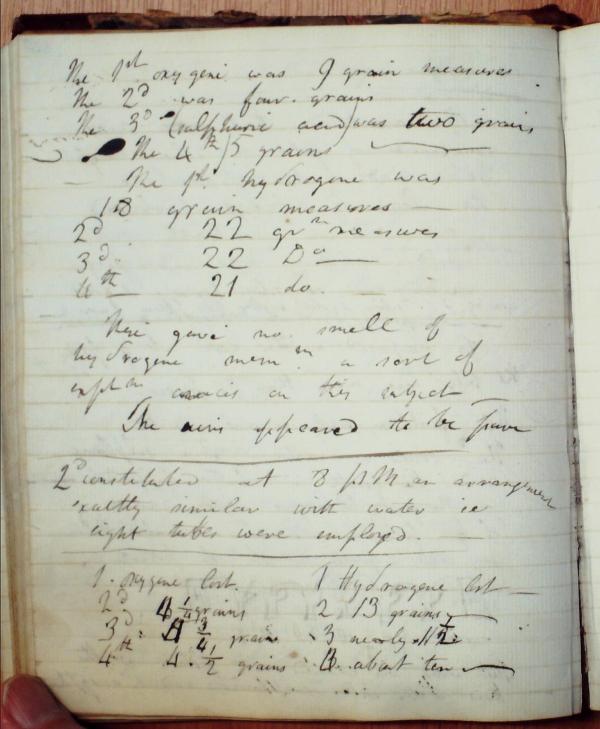 The 1st oxygene was 9 grain measures
The 2d was four grains
The 3d (sulphuric acid) was two grains
The 4th 5 grains
The 1st hydrogene was
18 grain measures
2d 22 grn measures
3d. 22 Do
4th 21 do.
These gave no smell of
hydrogene a sort of
on this subject
The airs appeared to be pure
2d constituted at 8 PM an arrangement
exactly similar with water ie
eight tubes were employed.
1. oxygene lost. 1 Hydrogene lost
2d. 4 1/4 grains 2 13 grains
3d: 4 3/4 grains 3 nearly 11 1/2
4th. 4. 1/2 grains 4. about ten